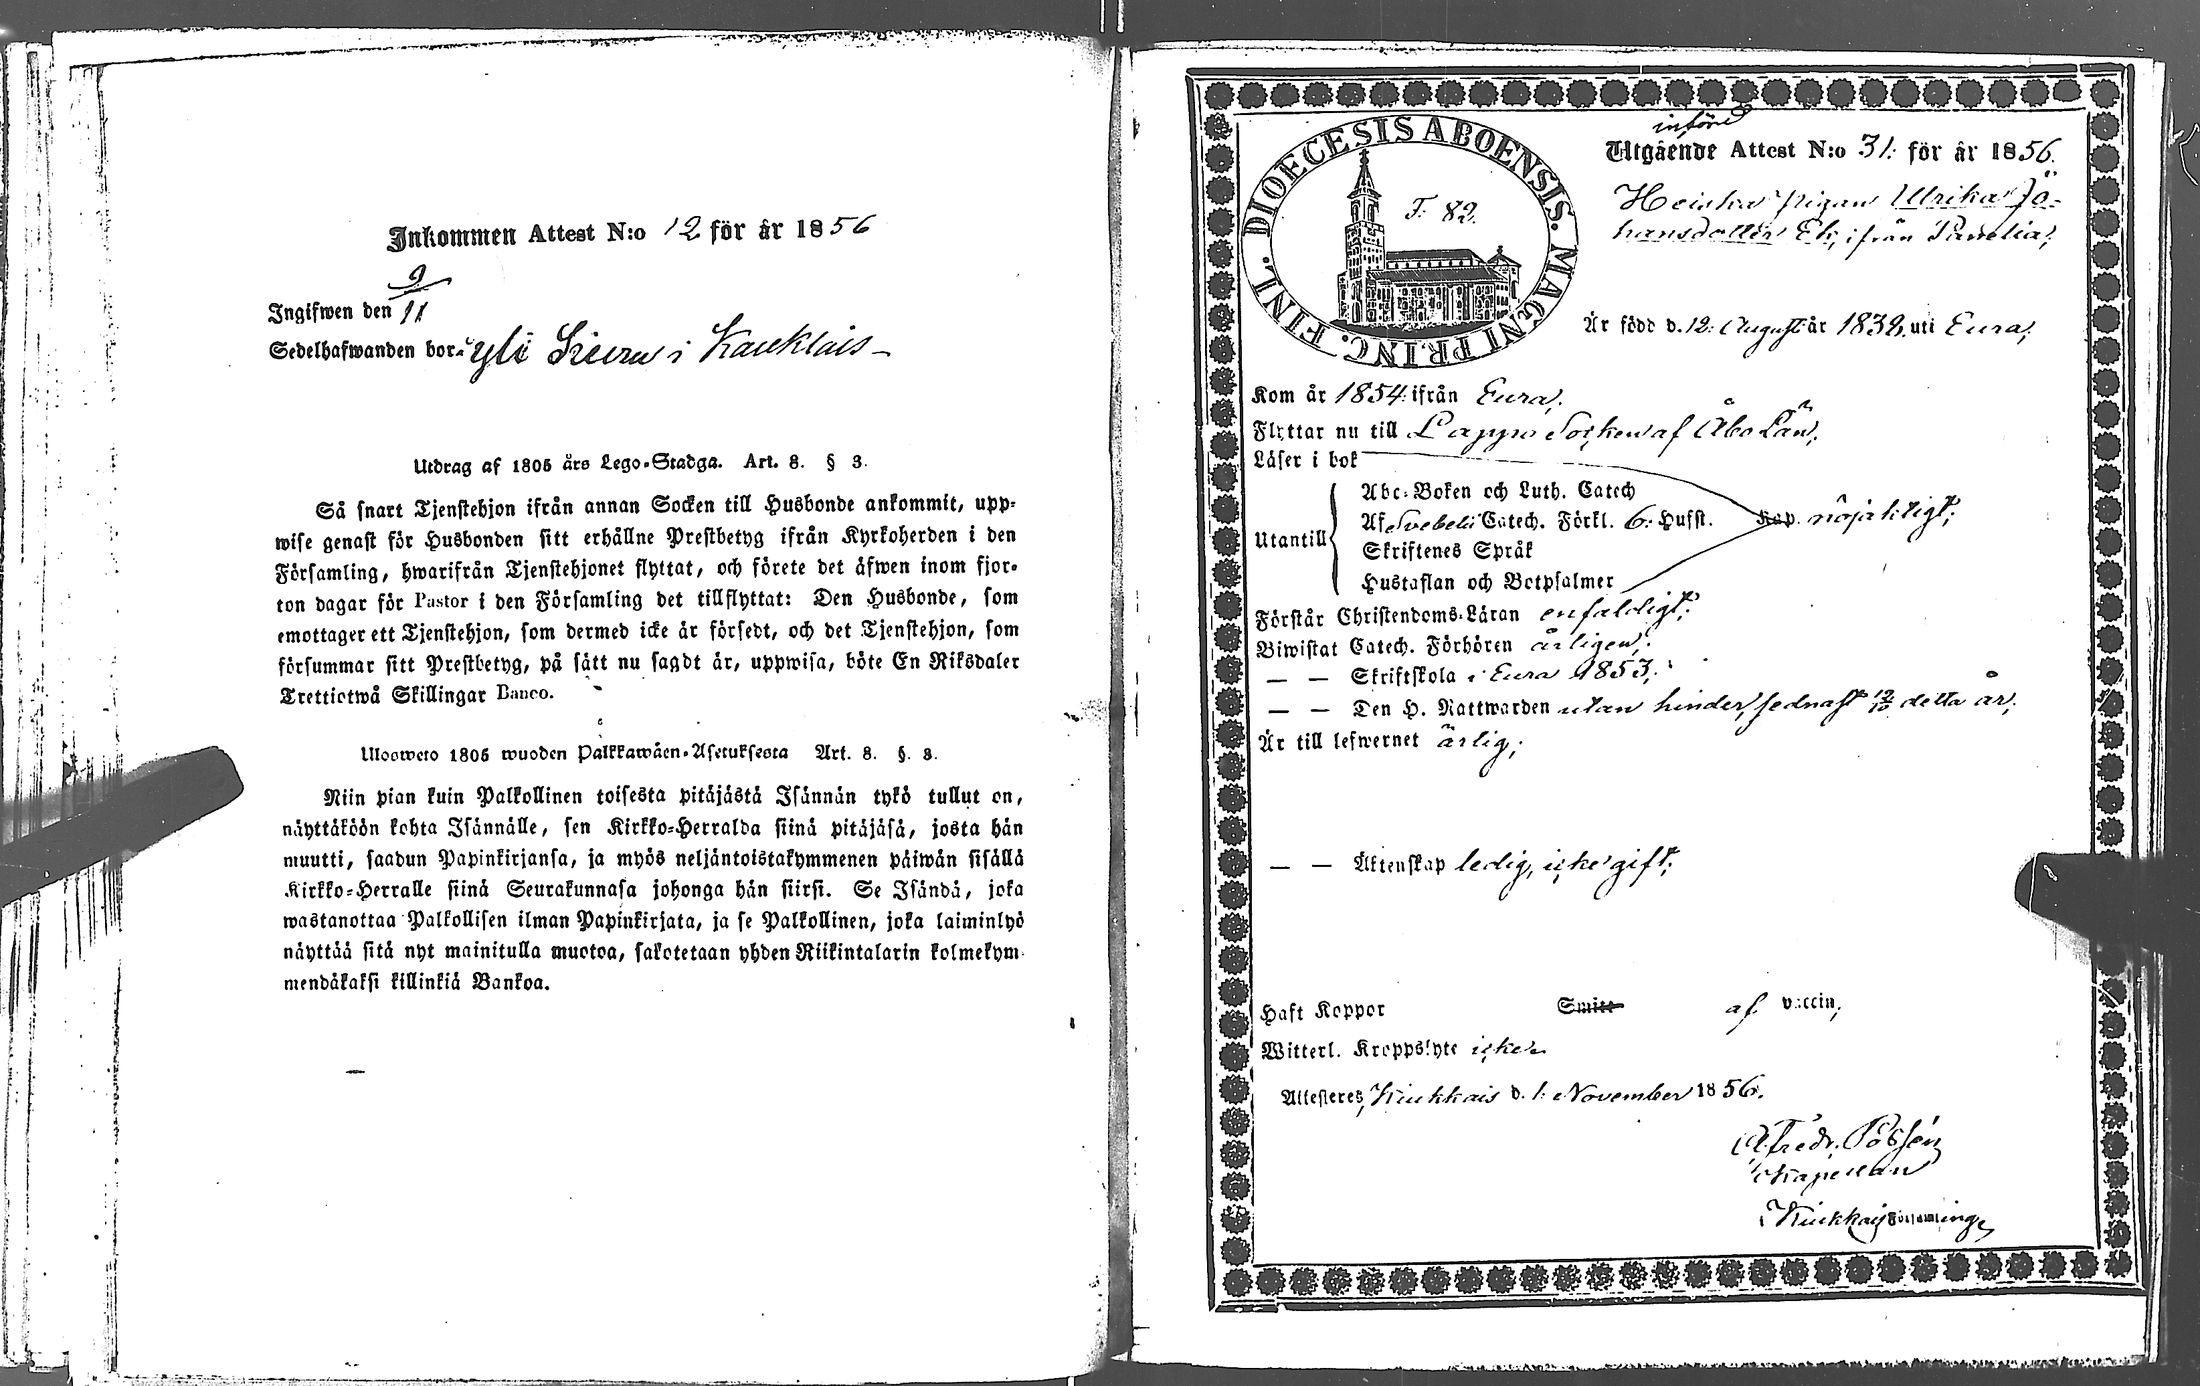 Inkommen Attest N:o 12 för år 1856
Ingifwen den 9/11
Sedelhafwanden bor i Yli i Kauklais
Utdrag af 1805 års Lego-Stadga. Art. 8. § 3.
Så snart Tjenstehjon ifrån annan Socken till Husbonde ankommit, upp-
wise genast för Husbonden sitt erhållne Prestbetyg ifrån Kyrkoherden i den
Församling, hwarifrån Tjenstehjonet flyttat, och förete det äfwen inom fjor-
ton dagar för Pastor i den Församling det tillflyttat: Den Husbonde, som
emottager ett Tjenstehjon, som dermed icke är försedt, och det Tjenstehjon, som
försummar sitt Prestbetyg, på sätt nu sagdt är, uppwisa, böte En Riksdaler
Trettiotwå Skillingar Banco.
Ulosweto 1805 wuoden Palkkawäen-Asetuksesta Art. 8. §. 3.
Niin pian kuin Palkollinen toisesta pitäjästä Isännän tykö tullut on,
näyttäköön kohta Isännälle, sen Kirkko-Herralda siinä pitäjäsä, josta hän
muutti, saadun Papinkirjansa, ja myös neljäntoistakymmenen päiwän sisällä
Kirkko-Herralle siinä Seurakunnasa johonga hän siirsi. Se Isändä, joka
wastanottaa Palkollisen ilman Papinkirjata, ja se Palkollinen, joka laiminlyö
näyttää sitä nyt mainitulla muotoa, sakotetaan yhden Riikintalarin kolmekym-
mendäkaksi killinkiä Bankoa.
DIOECESIS ABOENSIS. MAGNI PRINC. FINL.
F. 82.
införd
Utgående Attest N:o 31. för år 1856.
pigan Ulrika Jo-
hansdotter Ek, ifrån Panelia,
Är född d. 12. August år 1832. uti Eura,
Kom år 1854. ifrån Eura,
Flyttar nu till Lappo Socken af Åbo Län,
Läser i bok
Utantill
Abc-Boken och Luth. Catech
Af Svebelii Catech. Förkl. 6. Hufst. Kap. nöjaktigt,
Skriftenes Språk
Hustaflan och Botpsalmer
Förstår Christendoms-Läran enfaldigt,
Biwistat Catech. Förhören årligen,
— — Skriftskola i Eura 1853,
— — Den H. Nattwarden utan hinder, sednast 12/10 detta år,
Är till lefwernet ärlig,
— — Äktenskap ledig, icke gift,
Haft Koppor Smitt af vaccin,
Witterl. Kroppslyte icke
Attesteres, Kiukkais d. 1. November 1856.
Fredr.
Kapellan
i Kiukkais Församling